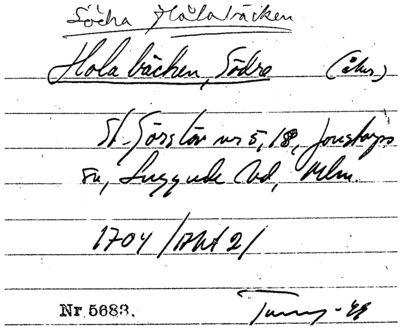 Södra Hålabäcken
Hola bäcken, Södra (åker)
St. Görstön nr 5, 18, Jonstorps
sn, Luggude hd, Mlm.
1704 /Akt 2/
Nr 5683.